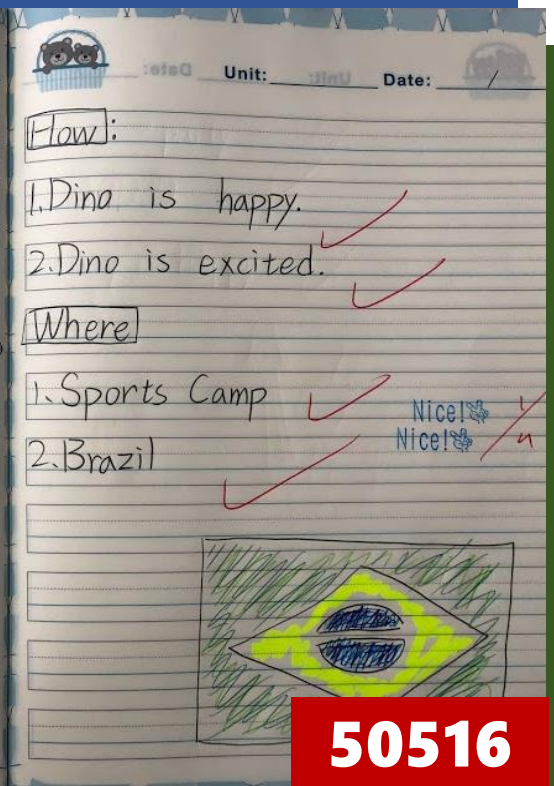 Unit: Date: /
How:
1. Dino is happy.
2. Dino is excited.
Where
1. Sports Camp
2. Brazil
Nice!
Nice!
4/4
50516